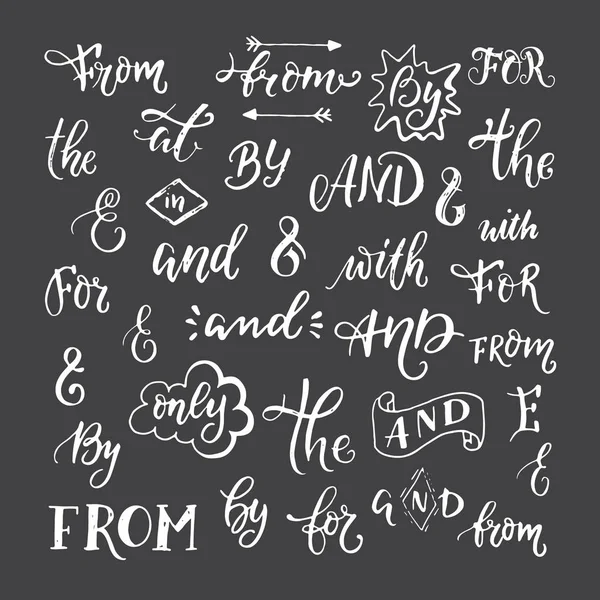 From from By FOR
the at BY AND & the
& in and & with with
For & and AND FOR
& FROM
By only the AND &
&
FROM by for AND from